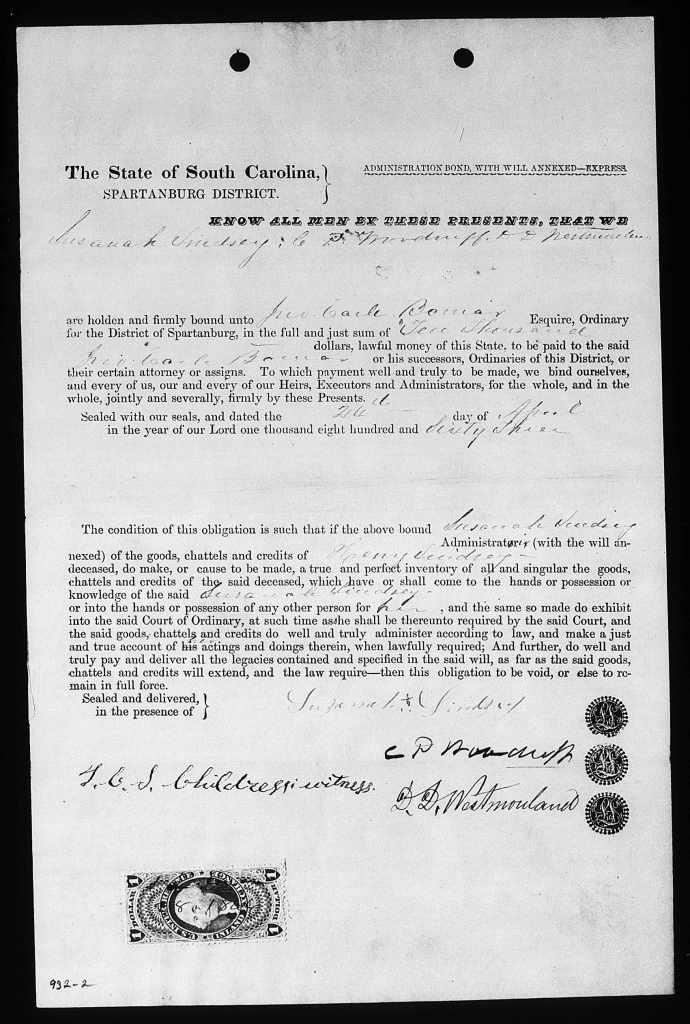 The State of South Carolina,
SPARTANBURG DISTRICT.
ADMINISTRATION BOND, WITH WILL ANNEXED—EXPRESS.
KNOW ALL MEN BY THESE PRESENTS, THAT WE
Susanah Lindsey, C P Woodruff & D D Westmoreland
are holden and firmly bound unto Jno. Earle Bomar Esquire, Ordinary
for the District of Spartanburg, in the full and just sum of Ten Thousand
dollars, lawful money of this State, to be paid to the said
Jno. Earle Bomar or his successors, Ordinaries of this District, or
their certain attorney or assigns. To which payment well and truly to be made, we bind ourselves,
and every of us, our and every of our Heirs, Executors and Administrators, for the whole, and in the
whole, jointly and severally, firmly by these Presents.
Sealed with our seals, and dated the day of April
in the year of our Lord one thousand eight hundred and Sixty Three
The condition of this obligation is such that if the above bound Susanah Lindsey
Administratorix (with the will an-
nexed) of the goods, chattels and credits of Henry Lindsey
deceased, do make, or cause to be made, a true and perfect inventory of all and singular the goods,
chattels and credits of the said deceased, which have or shall come to the hands or possession or
knowledge of the said Susanah Lindsey
or into the hands or possession of any other person for her, and the same so made do exhibit
into the said Court of Ordinary, at such time as she shall be thereunto required by the said Court, and
the said goods, chattels and credits do well and truly administer according to law, and make a just
and true account of his actings and doings therein, when lawfully required; And further, do well and
truly pay and deliver all the legacies contained and specified in the said will, as far as the said goods,
chattels and credits will extend, and the law require—then this obligation to be void, or else to re-
main in full force.
Sealed and delivered,
in the presence of
Susanah X Lindsey
C P Woodruff
T. O. P. Childress witness.
D. D. Westmoreland
932-2